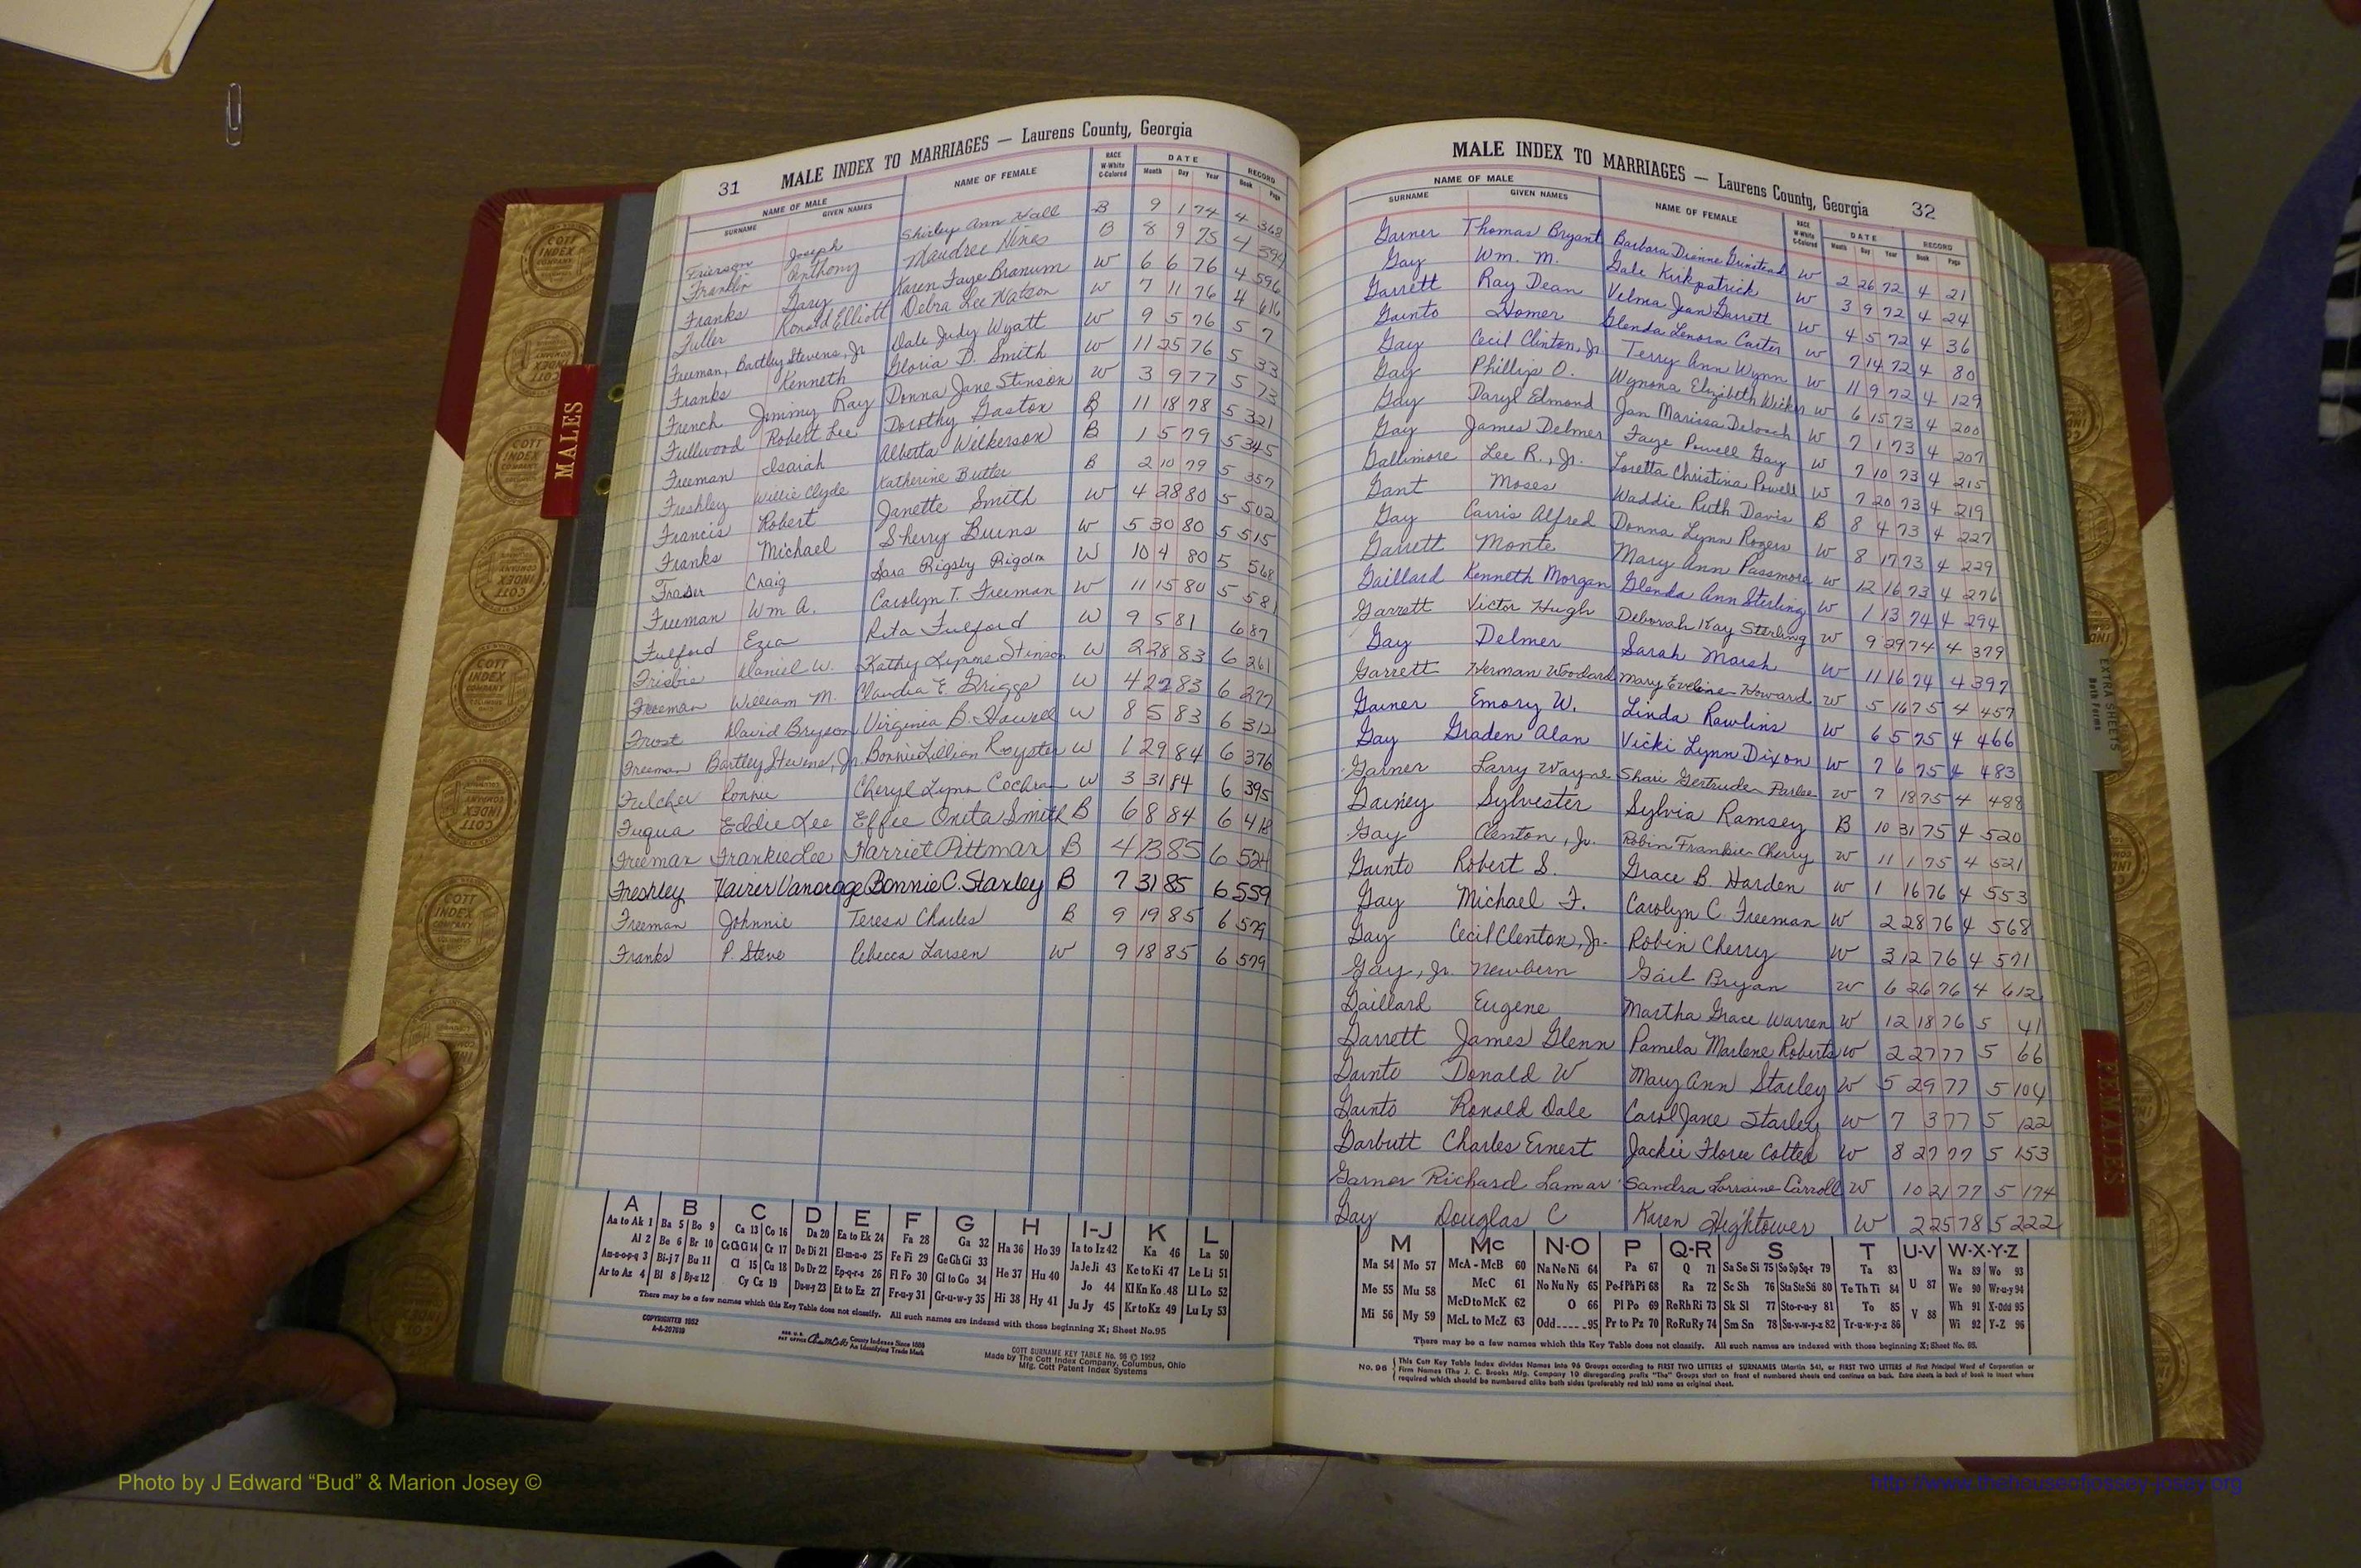 31 MALE INDEX TO MARRIAGES — Laurens County, Georgia
NAME OF MALE NAME OF FEMALE RACE W-White C-Colored DATE RECORD
SURNAME GIVEN NAMES Month Day Year Book Page
Frierson Joseph Shirley Ann Hall B 9 1 74 4 368
Franklin Anthony Maudree Nines B 8 9 75 4
Franks Gary Karen Faye Branum W 6 6 76 4 596
Fuller Ronald Elliott Debra Lee Watson W 7 11 76 4 616
Freeman, Bartley Stevens, Jr Dale Judy Wyatt W 9 5 76 5 7
Franks Kenneth Gloria D. Smith W 11 25 76 5 33
French Jimmy Ray Donna Jane Stinson W 3 9 77 5 73
Fullwood Robert Lee Dorothy Gaston B 11 18 78 5 321
Freeman Isaiah Alberta Wilkerson B 1 5 79 5 345
Freshley Willie Clyde Katherine Butler B 2 10 79 5 357
Francis Robert Janette Smith W 4 28 80 5 502
Franks Michael Sherry Burns W 5 30 80 5 515
Fraser Craig Sara Rigsby Rigdon W 10 4 80 5 568
Freeman Wm A. Carolyn T. Freeman W 11 15 80 5 581
Fulford Ezra Rita Fulford W 9 5 81 6 87
Frisbie Daniel W. Kathy Lynne Stinson W 2 28 83 6 261
Freeman William M. Claudia E. Griggs W 4 22 83 6 277
Frost David Bryson Virginia B. Howell W 8 5 83 6 312
Freeman Bartley Stevens, Jr. Bonnie Lillian Royster W 1 29 84 6 376
Fulcher Ronnie Cheryl Lynn Cochran W 3 31 84 6 395
Fuqua Eddie Lee Effie Oneta Smith B 6 8 84 6 418
Freeman Frankie Lee Harriet Pittman B 4 13 85 6 524
Freshley Bonnie C. Stanley B 7 31 85 6 559
Freeman Johnnie Teresa Charles B 9 19 85 6 579
Franks P. Steve Rebecca Larsen W 9 18 85 6 579
MALES
A B C D E F G H I-J K L
Aa to Ak 1 Ba 5 Bo 9 Ca 13 Co 16 Da 20 Ea to Ek 24 Fa 28 Ga 32 Ha 36 Ho 39 Ia to Iz 42 Ka 46 La 50
Al 2 Be 6 Br 10 Ce Ch Ci 14 Cr 17 De Di 21 El-m-n-o 25 Fe Fi 29 Ge Gh Gi 33 He 37 Hu 40 Ja Je Ji 43 Ke to Ki 47 Le Li 51
An-o-p-q 3 Bi-j 7 Bu 11 Cl 15 Cu 18 Do Dr 22 Ep-q-r-s 26 Fl Fo 30 Gl to Go 34 Hi 38 Hy 41 Jo 44 Kl Kn Ko 48 Ll Lo 52
Ar to Az 4 Bl 8 Bj-z 12 Cy Cz 19 Du-w-y 23 Et to Ez 27 Fr-u-y 31 Gr-u-w-y 35 Ju Jy 45 Kr to Kz 49 Lu Ly 53
There may be a few names which this Key Table does not classify. All such names are indexed with those beginning X; Sheet No. 95
COPYRIGHTED 1952
County Indexes Since 1888
An Identifying Trade Mark
COTT SURNAME KEY TABLE No. 96 © 1952
Made by The Cott Index Company, Columbus, Ohio
Mfg. Cott Patent Index Systems
MALE INDEX TO MARRIAGES — Laurens County, Georgia 32
NAME OF MALE NAME OF FEMALE RACE W-White C-Colored DATE RECORD
SURNAME GIVEN NAMES Month Day Year Book Page
Garner Thomas Bryant Barbara Dianne Grinstead W 2 26 72 4 21
Gay Wm. M. Gale Kirkpatrick W 3 9 72 4 24
Garrett Ray Dean Velma Jean Garrett W 4 5 72 4 36
Gainto Homer Glenda Lenora Carter W 7 14 72 4 80
Gay Cecil Clinton, Jr Terry Ann Wynn W 11 9 72 4 129
Gay Phillip O. Wynona Elizabeth Wicker W 6 15 73 4 200
Gay Daryl Edmond Jan Marissa DeLoach W 7 1 73 4 207
Gay James Delmer Faye Powell Gay W 7 10 73 4 215
Gallimore Lee R., Jr. Loretta Christina Powell W 7 20 73 4 219
Gant Moses Waddie Ruth Davis B 8 4 73 4 227
Gay Carris Alfred Donna Lynn Rogers W 8 17 73 4 229
Garrett Monte Mary Ann Passmore W 12 16 73 4 276
Gaillard Kenneth Morgan Glenda Ann Sterling W 1 13 74 4 294
Garrett Victor Hugh Deborah Kay Sterling W 9 29 74 4 379
Gay Delmer Sarah Marsh W 11 16 74 4 397
Garrett Herman Woodard Mary Eveline Howard W 5 16 75 4 457
Gainer Emory W. Linda Rawlins W 6 5 75 4 466
Gay Graden Alan Vicki Lynn Dixon W 7 6 75 4 483
Garner Larry Wayne Shari Gertrude Parlee W 7 18 75 4 488
Gainey Sylvester Sylvia Ramsey B 10 31 75 4 520
Gay Clenton, Jr. Robin Frankie Cherry W 11 1 75 4 521
Gainto Robert S. Grace B. Harden W 1 16 76 4 553
Gay Michael F. Carolyn C. Freeman W 2 28 76 4 568
Gay Cecil Clenton, Jr. Robin Cherry W 3 12 76 4 571
Gay, Jr. Newbern Gail Bryan W 6 26 76 4 612
Gaillard Eugene Martha Grace Warren W 12 18 76 5 41
Garrett James Glenn Pamela Marlene Roberts W 2 27 77 5 66
Gainto Donald W Mary Ann Stanley W 5 29 77 5 104
Gainto Ronald Dale Carol Jane Stanley W 7 3 77 5 122
Garbutt Charles Ernest Jackie Floree Cotten W 8 27 77 5 153
Garner Richard Lamar Sandra Lorraine Carroll W 10 21 77 5 174
Gay Douglas C Karen Hightower W 2 25 78 5 222
M Mc N-O P Q-R S T U-V W-X-Y-Z
Ma 54 Mo 57 McA - McB 60 Na Ne Ni 64 Pa 67 Q 71 Sa Se Si 75 So Sp Sq-r 79 Ta 83 U 87 Wa 89 Wo 93
Me 55 Mu 58 McC 61 No Nu Ny 65 Pe-f Ph Pi 68 Ra 72 Sc Sh 76 Sta Ste Sti 80 Te Th Ti 84 We 90 Wr-u-y 94
Mi 56 My 59 McD to McK 62 O 66 Pl Po 69 Re Rh Ri 73 Sk Sl 77 Sto-r-u-y 81 To 85 V 88 Wh 91 X-Odd 95
McL to McZ 63 Odd-----95 Pr to Pz 70 Ro Ru Ry 74 Sm Sn 78 Su-v-w-y-z 82 Tr-u-w-y-z 86 Wi 92 Y-Z 96
There may be a few names which this Key Table does not classify. All such names are indexed with those beginning X; Sheet No. 95.
No. 96 This Cott Key Table Index divides Names into 96 Groups according to FIRST TWO LETTERS of SURNAMES (Martin 54), or FIRST TWO LETTERS of First Principal Word of Corporation or
Firm Names (The J. C. Brooks Mfg. Company 10 disregarding prefix "The" Groups start on front of numbered sheets and continue on back. Extra sheets in back of book to insert where
required which should be numbered alike both sides (preferably red ink) same as original sheet.
EXTRA SHEETS
Both Forms
FEMALES
COTT INDEX COMPANY
Photo by J Edward “Bud” & Marion Josey ©
http://www.thehouseofjossey-josey.org